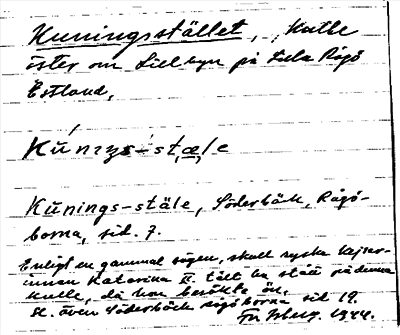 Kuningsstället, kulle
öster om Lillbyn på Lilla Rågö
Estland,
Kúnıŋs-stæ̣le
Kunings-stäle, Söderbäck, Rågö-
borna, sid. 7.
Enligt en gammal sägen, skall ryska kejsar-
innan Katarina II. tält ha stått på denna
kulle, då hon besökte ön.
se även Söderbäck Rågöborna sid 19.
1944.